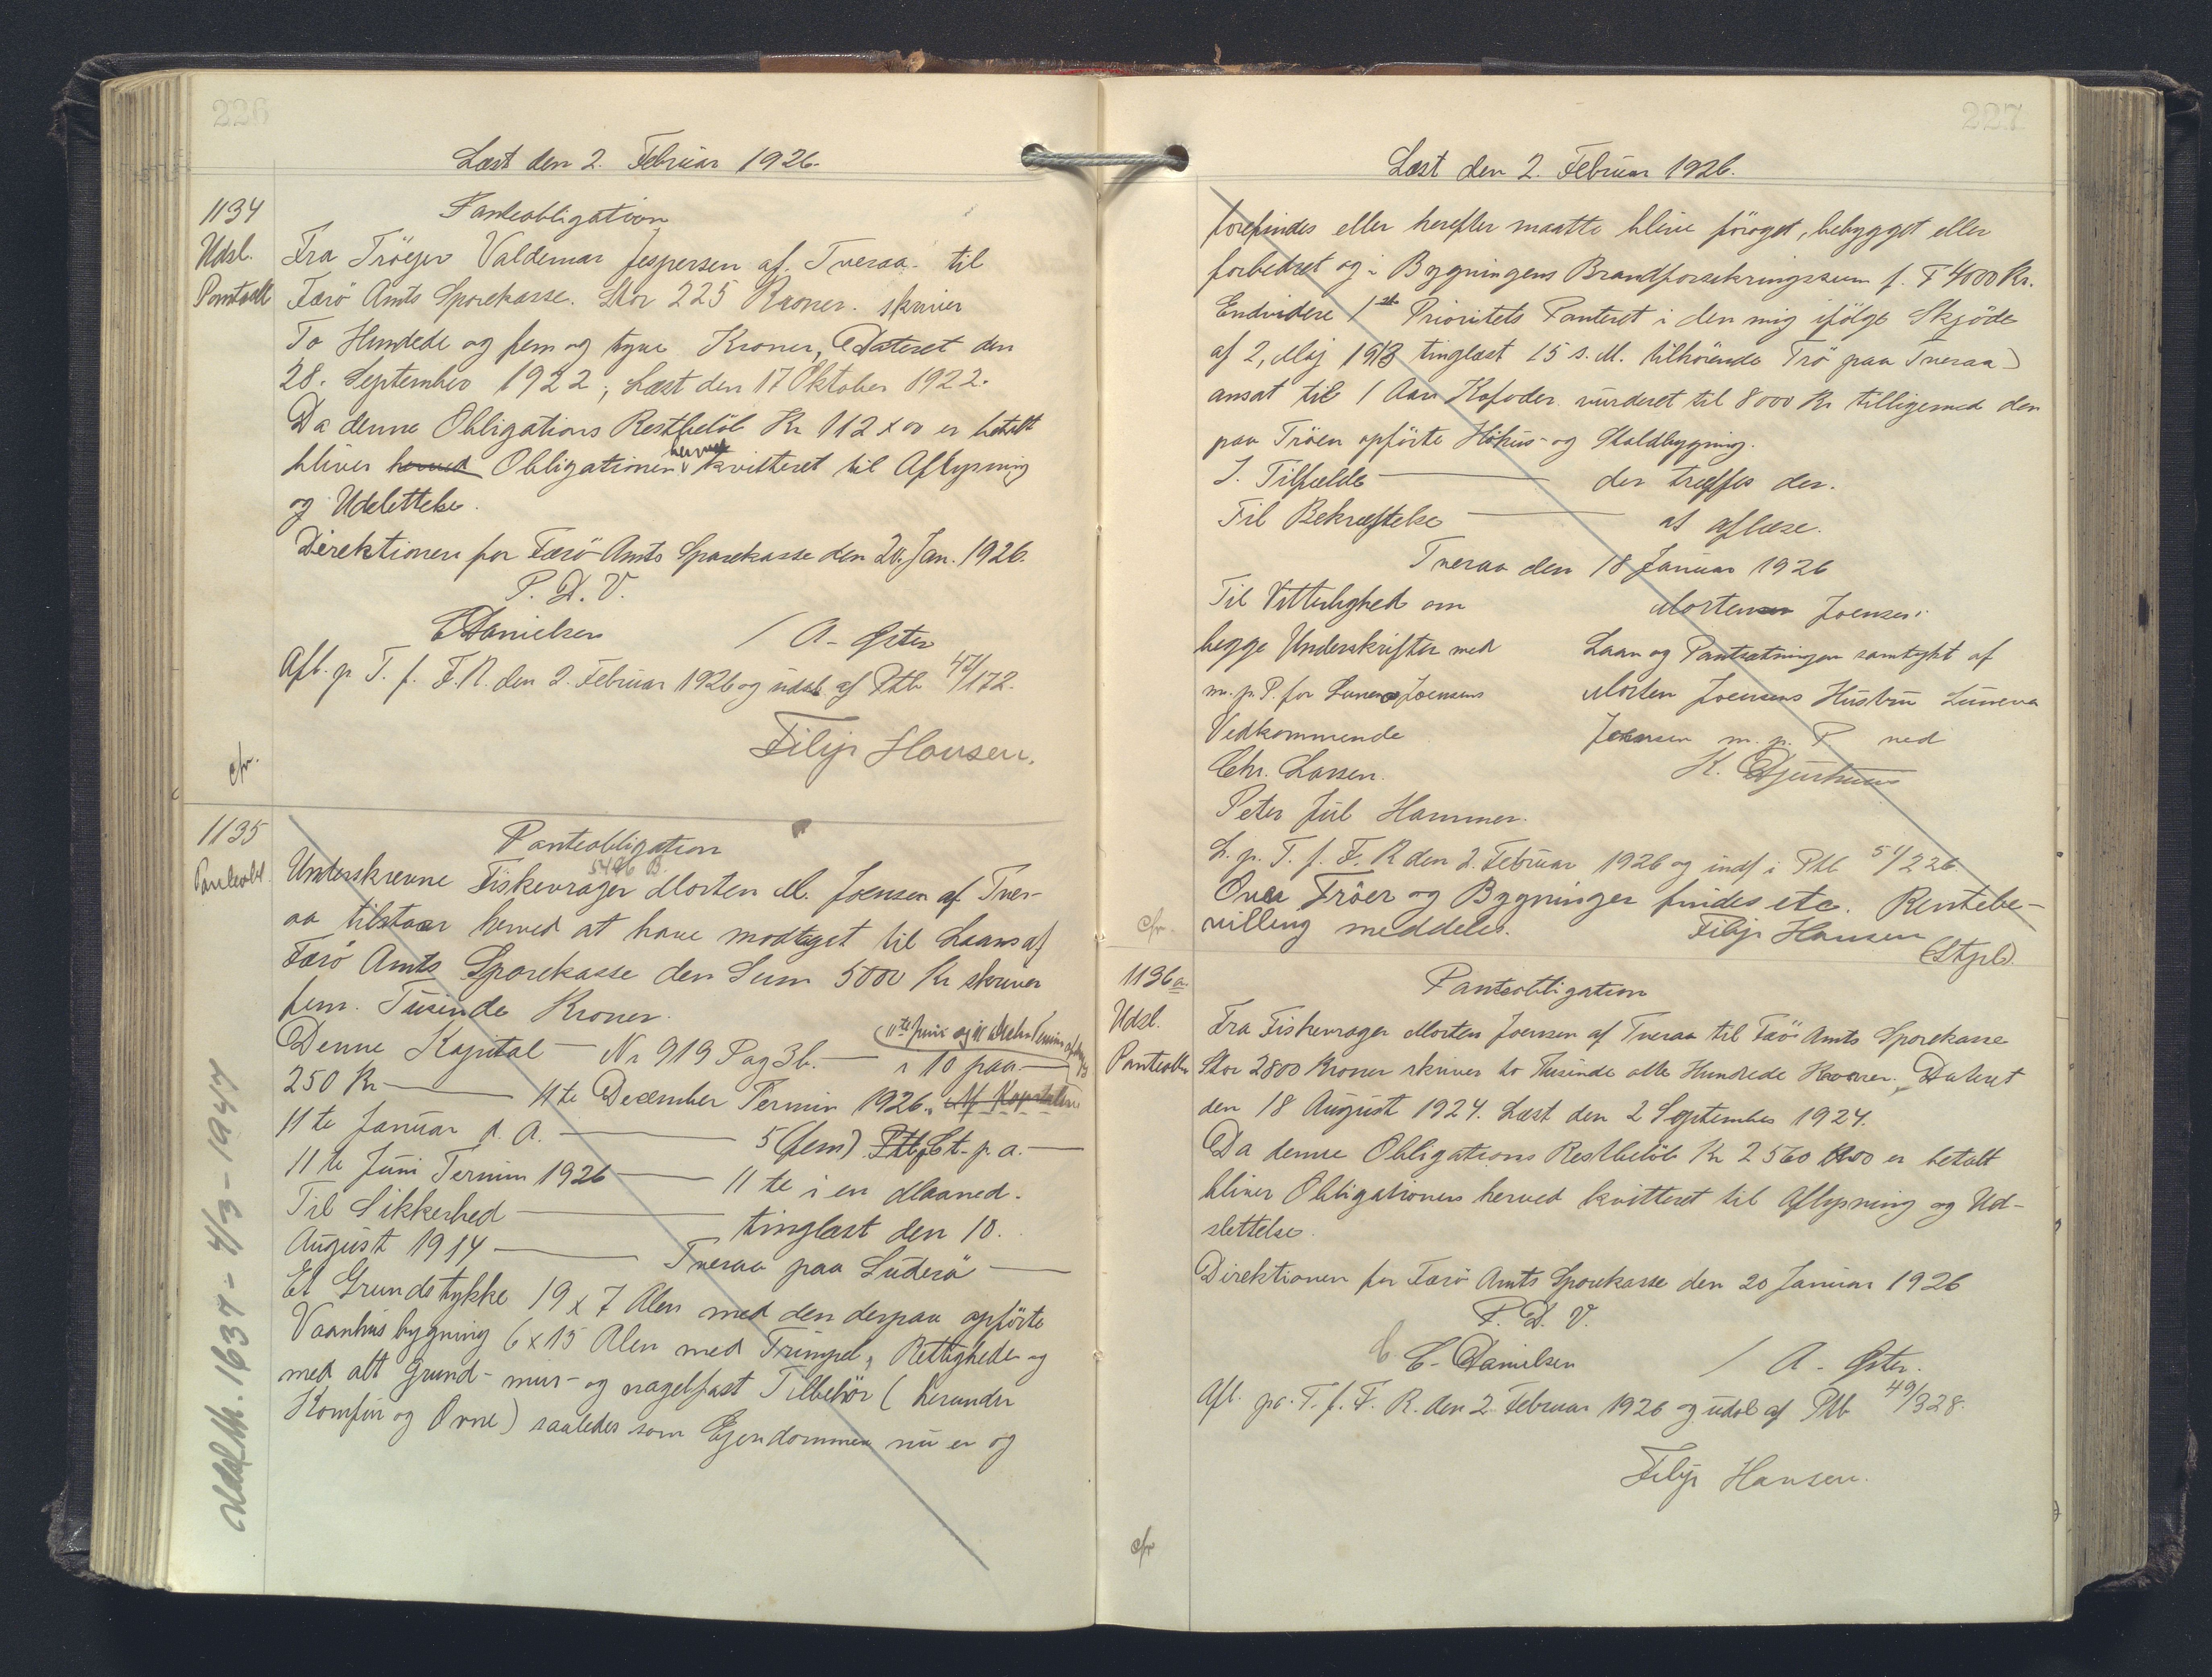 226
Læst den 2. Februar 1926.
1134
Udsl.
Pantobl
Panteobligation
Fra Tröejer Valdemar Jespersen af Tveraa til
Færö Amts Sparekasse. Stor 225 Kroner. skriver
To Hundrede og fem og tyve Kroner, Dateret den
28. September 1922, Læst den 17 Oktober 1922.
Da denne Obligations Restbelöb Kr 112 x 00 er betalt
bliver herved Obligationen herved kvitteret til Aflysning
og Udslettelse.
Direktionen for Færö Amts Sparekasse den 20. Jan. 1926.
P. D. V.
C Danielsen / A. Öster
Afl. p. T. f. F. R. den 2. Februar 1926 og udsl af Ptb 47/172.
Filip Hansen.
cfr.
1135
Panteobl.
Panteobligation
5496 B.
Underskrevne Fiskevrager Morten M. Joensen af Tver-
aa tilstaar herved at have modtaget til Laans af
Færö Amts Sparekasse den Sum 5000 Kr skriver
fem Tusinde Kroner.
Denne Kapital — Nr 919 Pag 36. — i 10 paa —
250 Kr — 11te December Termin 1926. Af Kapitalen
11te Januar d. A. — 5 (fem) Ptb Ct. p. a. —
11te Juni Termin 1926 — 11te i en Maaned.
Til Sikkerhed — tinglæst den 10.
August 1914 — Tveraa paa Suderö —
Et Grundstykke 19 x 7 Alen med den derpaa opförte
Vaanhusbygning 6 x 15 Alen med Trumpel, Rettigheder og
med alt grund- mur- og nagelfast Tilbehör (herunder
Komfur og Ovne) saaledes som Ejendommen nu er og
Udsl. lb. 1637 - 4/3 - 1947
227
Læst den 2. Februar 1926.
forefindes eller herefter maatte blive föroget, bebygget eller
forbedret og i Bygningens Brandforsikringssum f. T 4000 Kr.
Endvidere 1ste Prioritets Panteret i den mig ifölge Skjöde
af 2, Maj 1913 tinglæst 15 s. M. tilhörende Trö paa Tveraa
ansat til 1 Aars Kofoder vurderet til 8000 Kr tilligemed den
paa Tröen opförte Höhus- og Staldbygning.
I Tilfælde — der træffes der.
Til Bekræftelse — at aflæse.
Tveraa den 18 Januar 1926
Til Vitterlighed om Morten Joensen.
begge Underskrifter med Laan og Pantsætningen samtykt af
m. p. P. for Sunneva Joensens Morten Joensens Hustru Sunneva
Vedkommende Joensen m. p. P ved
Chr. Larsen. K. Djurhuus
Peter Jul Hammer.
L. p. T. f. F. R den 2. Februar 1926 og indf i Ptb 51/226.
Over Tröer og Bygninger findes etc. Rentebe-
villing meddeles. Filip Hansen
(Stpl).
cfr.
1136a
Udsl.
Panteobl
Panteobligation
Fra Fiskevrager Morten Joensen af Tveraa til Færö Amts Sparekasse
Stor 2800 Kroner skriver to Tusinde otte Hundrede Kroner. Dateret
den 18 August 1924. Læst den 2 September 1924.
Da denne Obligations Restbelöb Kr 2560 x 00 er betalt
bliver Obligationen herved kvitteret til Aflysning og Ud-
slettelse.
Direktionen for Færö Amts Sparekasse den 20 Januar 1926
P. D. V.
C. Danielsen / A. Öster.
Afl. pa. T. f. F. R. den 2. Februar 1926 og udsl af Ptb 49/328.
Filip Hansen.
cfr